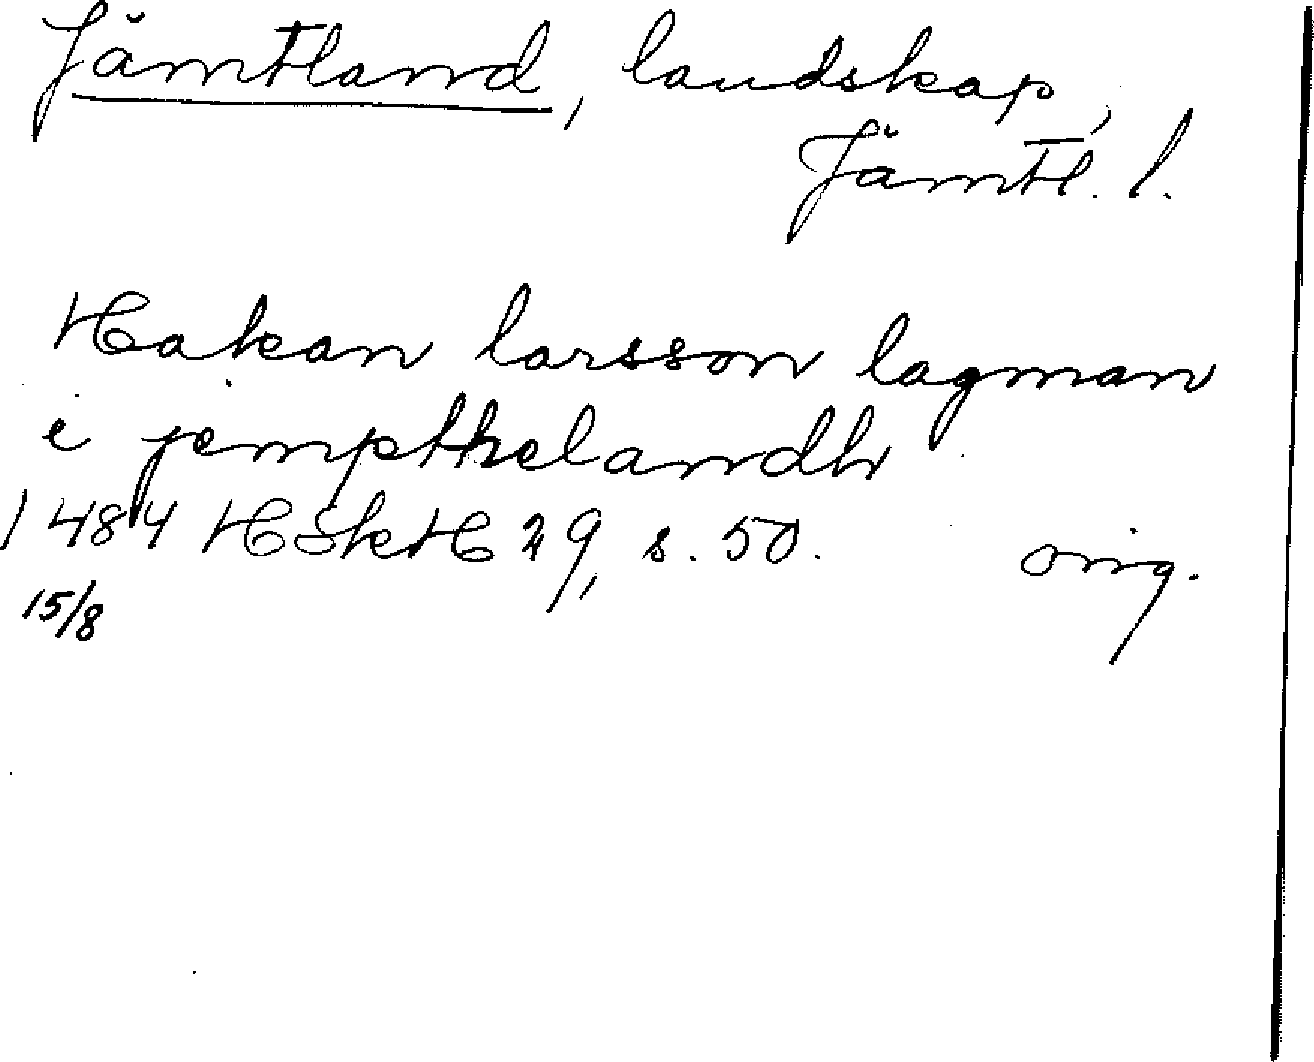 Jämtland, landskap,
Jämtl. l.
Hakan larsson lagman
i jempthelandh
1484 HSkH 29, s. 50. orig.
15/8